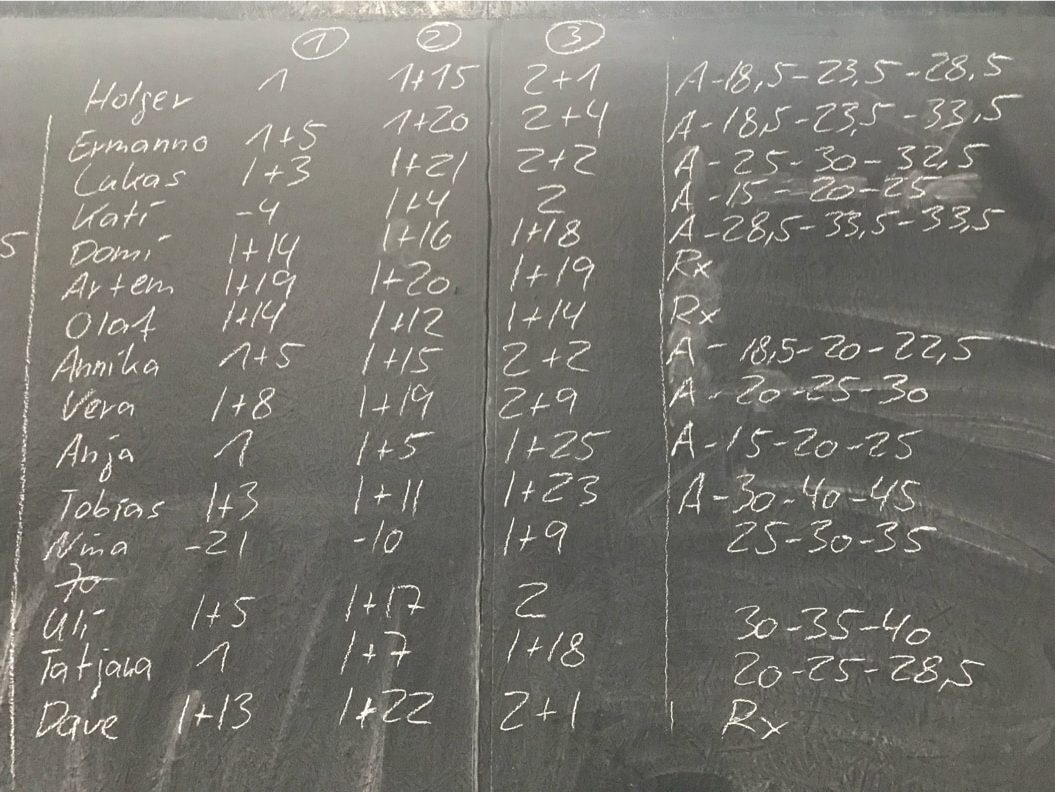 1 2 3
Holger 1 1+15 2+1 A-18,5-23,5-28,5
Ermanno 1+5 1+20 2+4 A-18,5-23,5-33,5
Lukas 1+3 1+21 2+2 A-25-30-32,5
Kati -4 1+4 2 A-15-20-25
5 Domi 1+14 1+16 1+18 A-28,5-33,5-33,5
Artem 1+19 1+20 1+19 Rx
Olaf 1+14 1+12 1+14 Rx
Annika 1+5 1+15 2+2 A-18,5-20-22,5
Vera 1+8 1+19 2+9 A-20-25-30
Anja 1 1+5 1+25 A-15-20-25
Tobias 1+3 1+11 1+23 A-30-40-45
Nina -21 -10 1+9 25-30-35
Jo
Uli 1+5 1+17 2 30-35-40
Tatjana 1 1+7 1+18 20-25-28,5
Dave 1+13 1+22 2+1 Rx